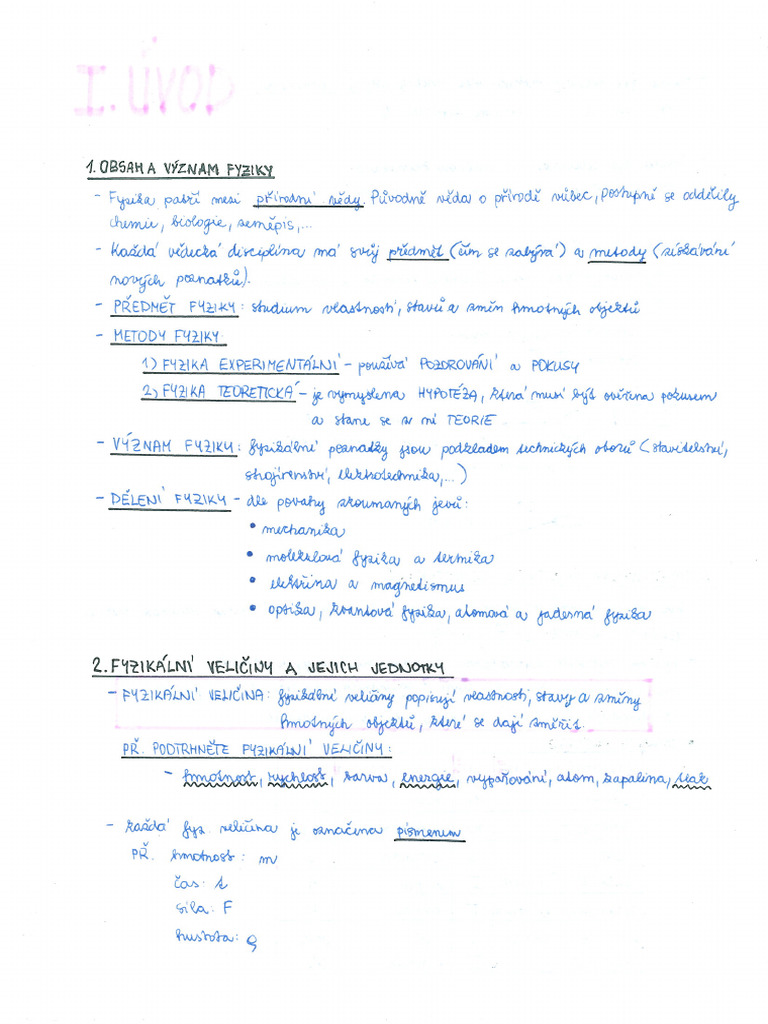 I. ÚVOD
1. OBSAH A VÝZNAM FYZIKY
- Fyzika patří mezi přírodní vědy. Původně věda o přírodě vůbec, postupně se oddělily
chemie, biologie, zeměpis,...
- Každá vědecká disciplína má svůj předmět (čím se zabývá) a metody (získávání
nových poznatků).
- PŘEDMĚT FYZIKY: studium vlastností, stavů a změn hmotných objektů
- METODY FYZIKY:
1) FYZIKA EXPERIMENTÁLNÍ - používá POZOROVÁNÍ a POKUSY
2) FYZIKA TEORETICKÁ - je vymyšlena HYPOTÉZA, která musí být ověřena pokusem
a stane se z ní TEORIE
- VÝZNAM FYZIKY: fyzikální poznatky jsou podkladem technických oborů (stavitelství,
strojírenství, elektrotechnika,...)
- DĚLENÍ FYZIKY - dle povahy zkoumaných jevů:
• mechanika
• molekulová fyzika a termika
• elektřina a magnetismus
• optika, kvantová fyzika, atomová a jaderná fyzika
2. FYZIKÁLNÍ VELIČINY A JEJICH JEDNOTKY
- FYZIKÁLNÍ VELIČINA: fyzikální veličiny popisují vlastnosti, stavy a změny
hmotných objektů, které se dají změřit.
PŘ. PODTRHNĚTE FYZIKÁLNÍ VELIČINY:
- hmotnost, rychlost, barva, energie, vypařování, atom, kapalina, tlak
- každá fyz. veličina je označena písmenem
PŘ. hmotnost: m
čas: t
síla: F
hustota: ϱ